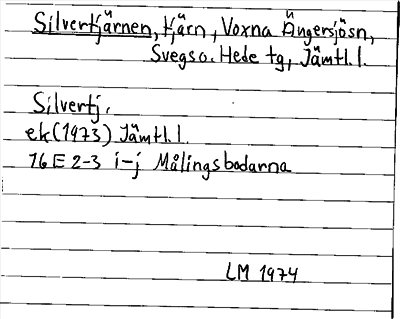 Silvertjärnen, tjärn, Voxna Ängersjösn,
Svegs o. Hede tg, Jämtl.l.
Silvertj.
ek(1973) Jämtl.l.
16E 2-3 i-j Målingsbodarna
LM 1974